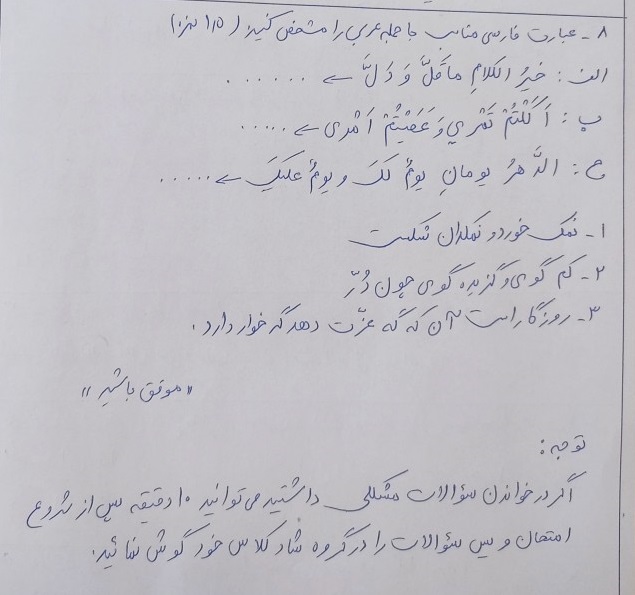 ۸- عبارت فارسی مناسب با جمله عربی را مشخص کنید (۱/۵ نمره)
الف: خَیرُ الکلامِ ما قَلَّ وَ دَلَّ ← .......
ب: اَکَلْتُمْ تَمْری وَ عَصَیْتُمْ اَمْری ← .....
ج: الدَّهرُ یومانِ یومٌ لَکَ و یومٌ علیکَ ← .....
۱- نمک خورد و نمکدان شکست
۲- کم گوی و گزیده گوی چون دُرّ
۳- روزگار است آن که گه عزّت دهد گه خوار دارد.
«موفق باشید»
توجه:
اگر در خواندن سؤالات مشکلی داشتید می توانید ۱۰ دقیقه پس از شروع
امتحان ویس سؤالات را در گروه شاد کلاس خود گوش نمائید.